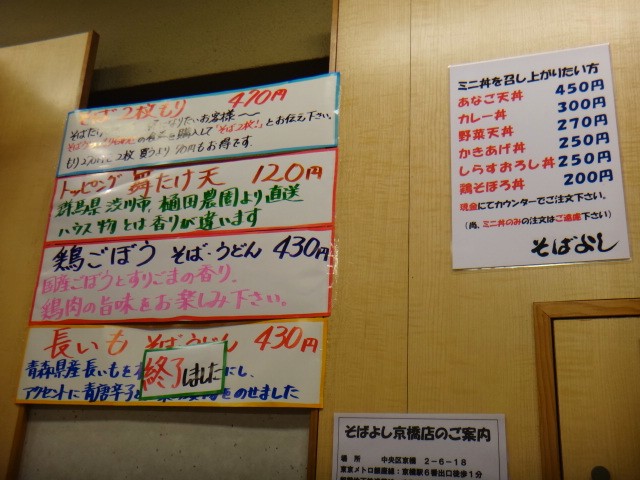 そば2枚もり 470円
そばたり りたいお客様〜
そば を購入して「そば2枚!」とお伝え下さい。
もり2 2枚 買うより 円もお得です。
トッピング 舞たけ天 120円
群馬県 渋川市 樋田農園より直送
ハウス物とは香りが違います
鶏ごぼう そば・うどん 430円
国産ごぼうとすりごまの香り、
鶏肉の旨味をお楽しみ下さい。
長いも そばうどん 430円
青森県産長いもを にし、
アクセントに青唐辛子 をのせました
終了しました
ミニ丼を召し上がりたい方
あなご天丼 450円
カレー丼 300円
野菜天丼 270円
かきあげ丼 250円
しらすおろし丼 250円
鶏そぼろ丼 200円
現金にてカウンターでご注文下さい。
(尚、ミニ丼のみの注文はご遠慮下さい)
そばよし
そばよし京橋店のご案内
場所 中央区京橋 2-6-18
東京メトロ銀座線:京橋駅6番出口徒歩1分